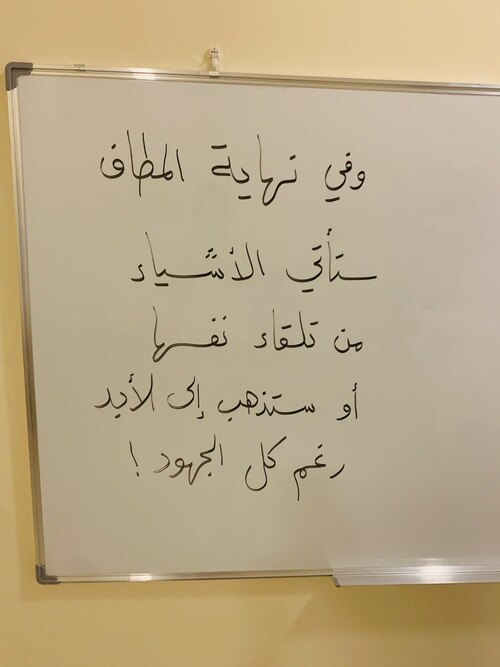 وفي نهاية المطاف
ستأتي الأشياء
من تلقاء نفسها
أو ستذهب إلى الأبد
رغم كل الجهود !